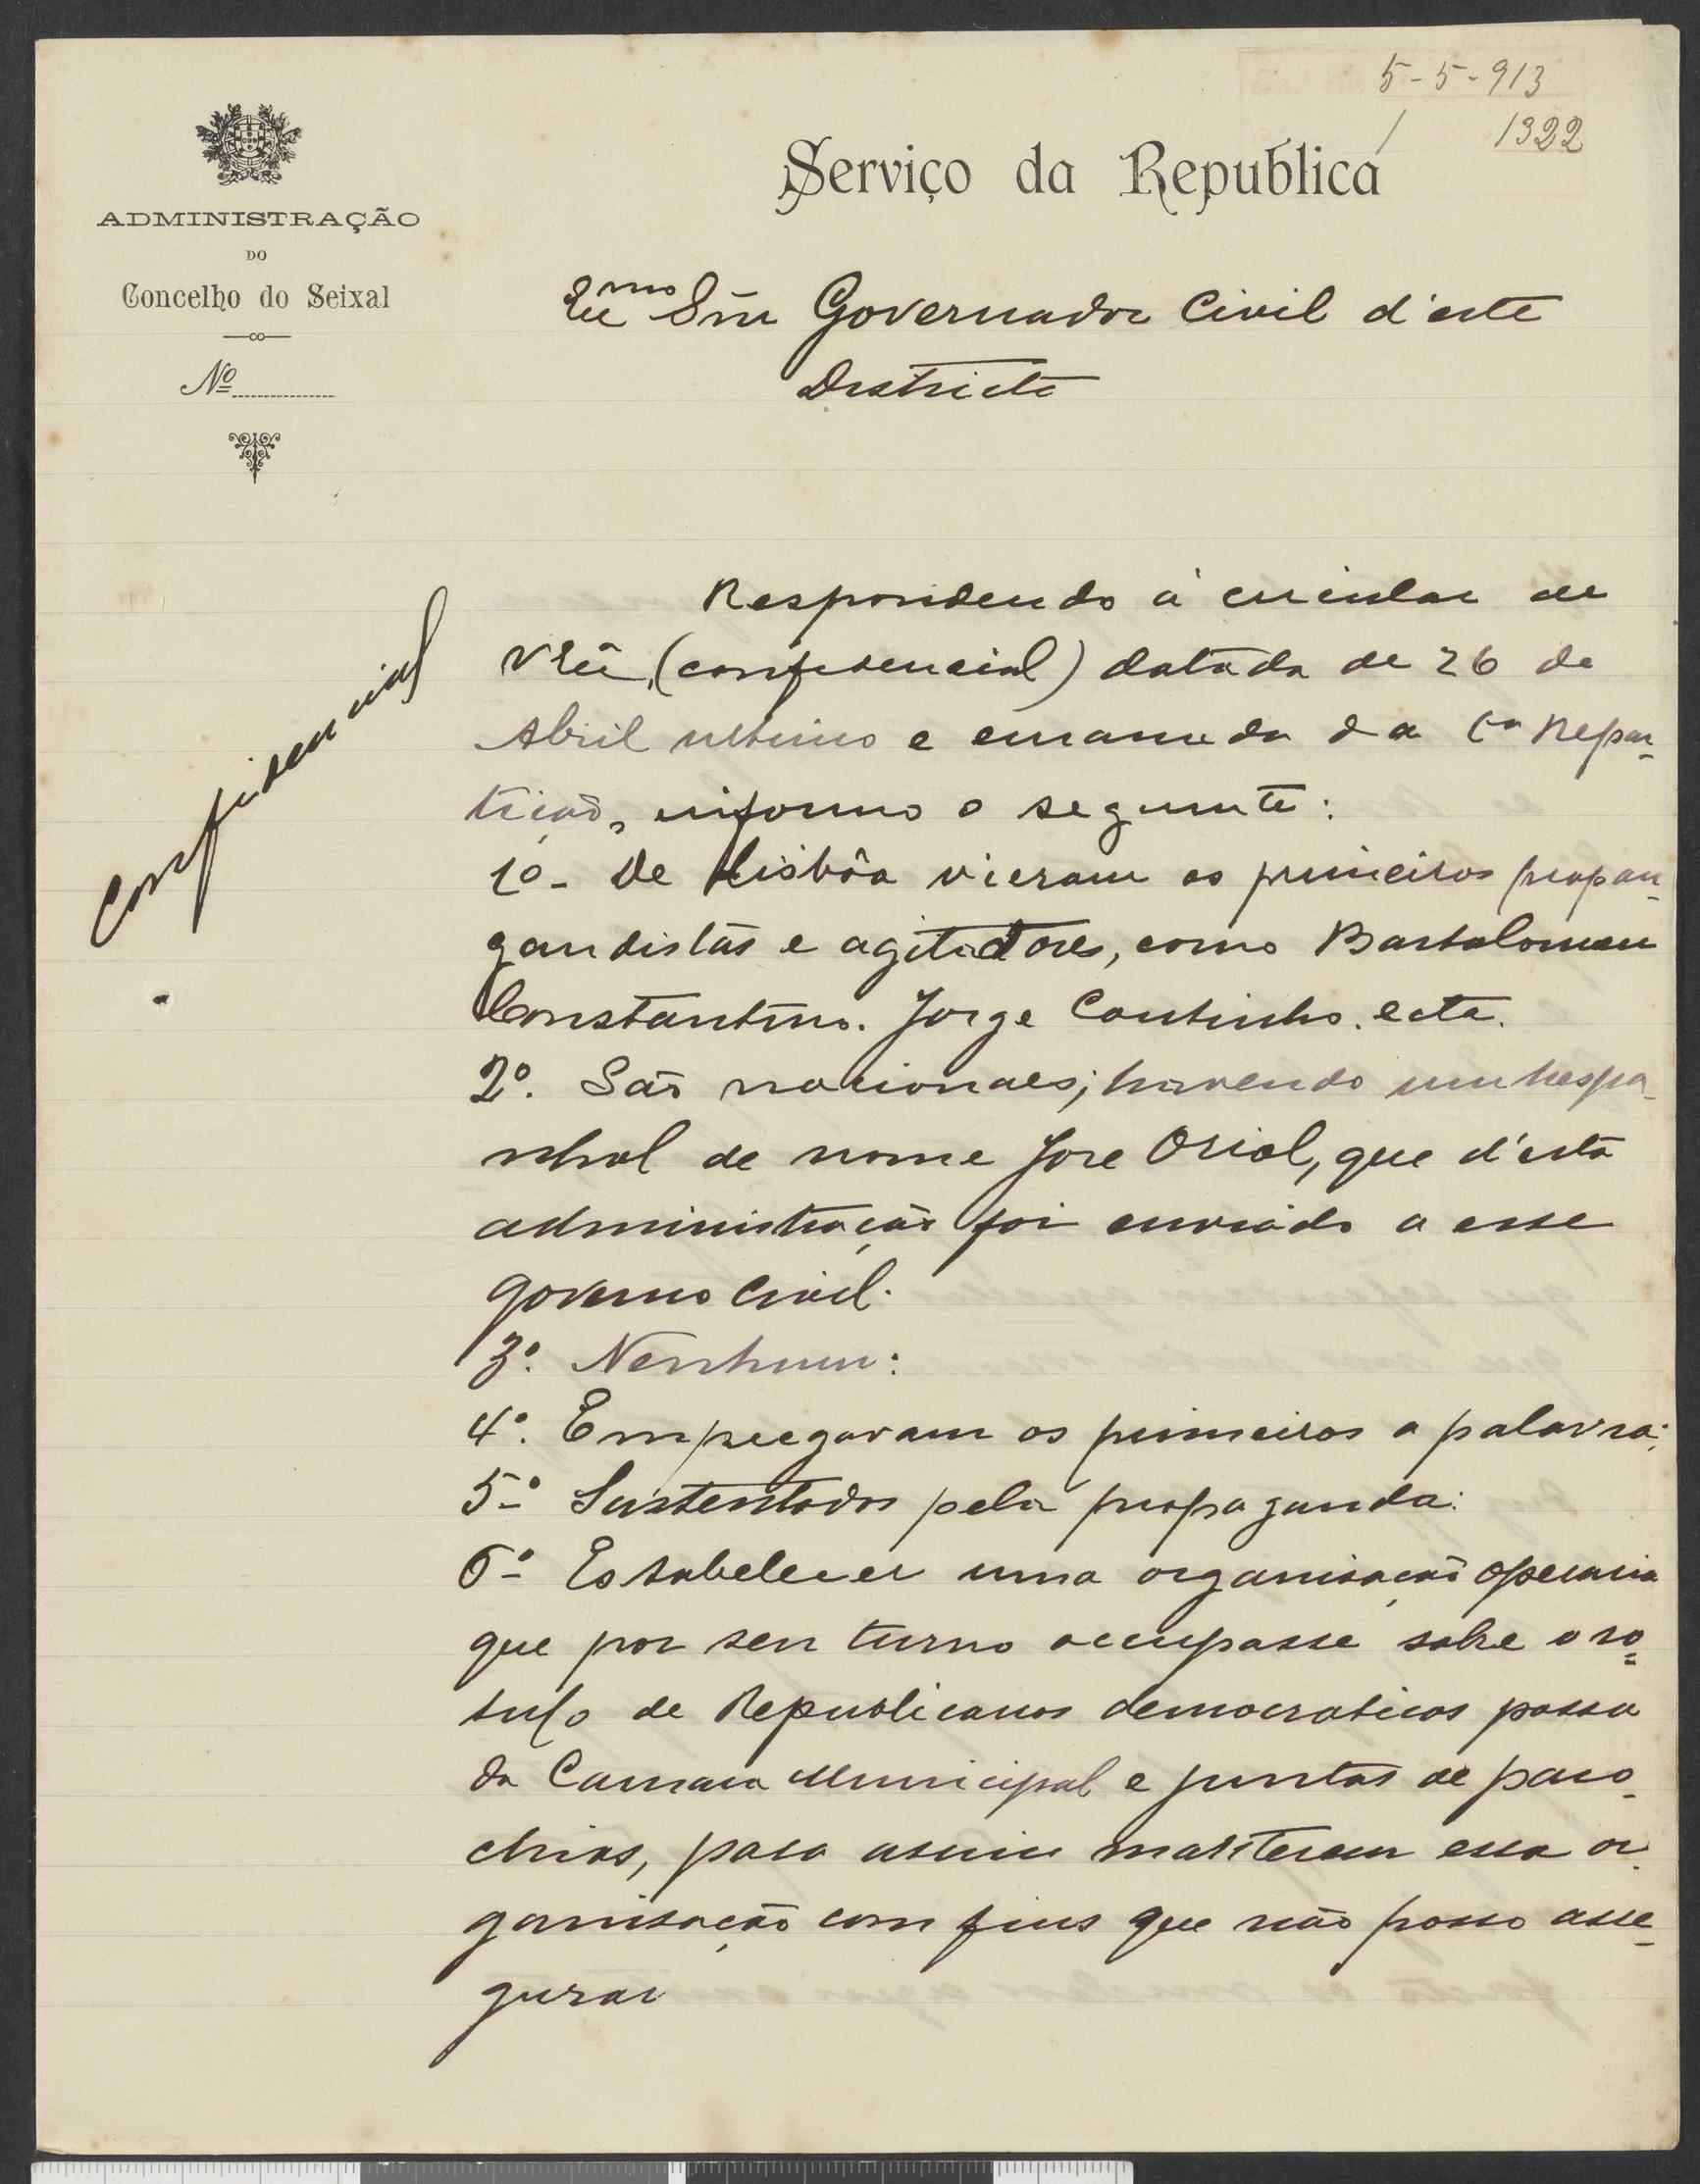 5-5-913
1322
Serviço da Republica
ADMINISTRAÇÃO
DO
Concelho do Seixal
Nº
Exmo Snr Governador Civil d'este
Districto
Confidencial
Respondendo á circular de
V Exª (confidencial) datada de 26 de
Abril ultimo e emanada da 1ª Repar-
tição, informo o seguinte:
1º - De Lisbôa vieram os primeiros propan-
gandistas e agitadores, como Bartolomeu
Constantino. Jorge Coutinho. ecta.
2º. São nacionaes; havendo um hespa-
nhol de nome Jose Oriol, que d'esta
administração foi enviado a esse
governo Civil.
3º. Nenhum:
4º. Empregavam os primeiros a palavra:
5º Sustentados pela propaganda:
6º Estabelecer uma organisação operaria
que por seu turno occupasse sobre o ro=
tulo de Republicanos democraticos possa
da Camara Municipal e juntas de paro-
chias, para assim manterem essa or-
ganisação com fins que não posso asse-
gurar